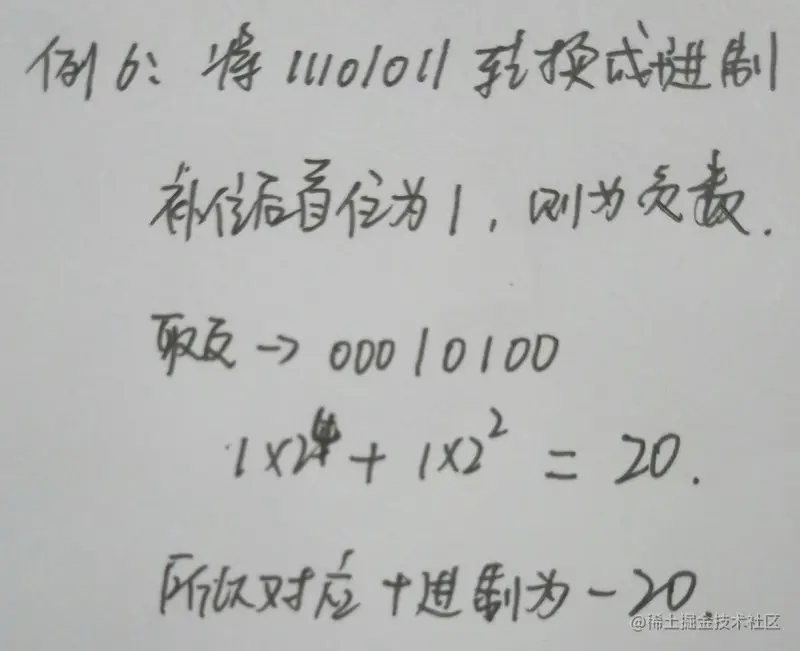 例6: 将11101011转换成十进制
补位后首位为1，则为负数.
取反→00010100
1×2⁴+1×2²=20.
所以对应十进制为-20.
@稀土掘金技术社区